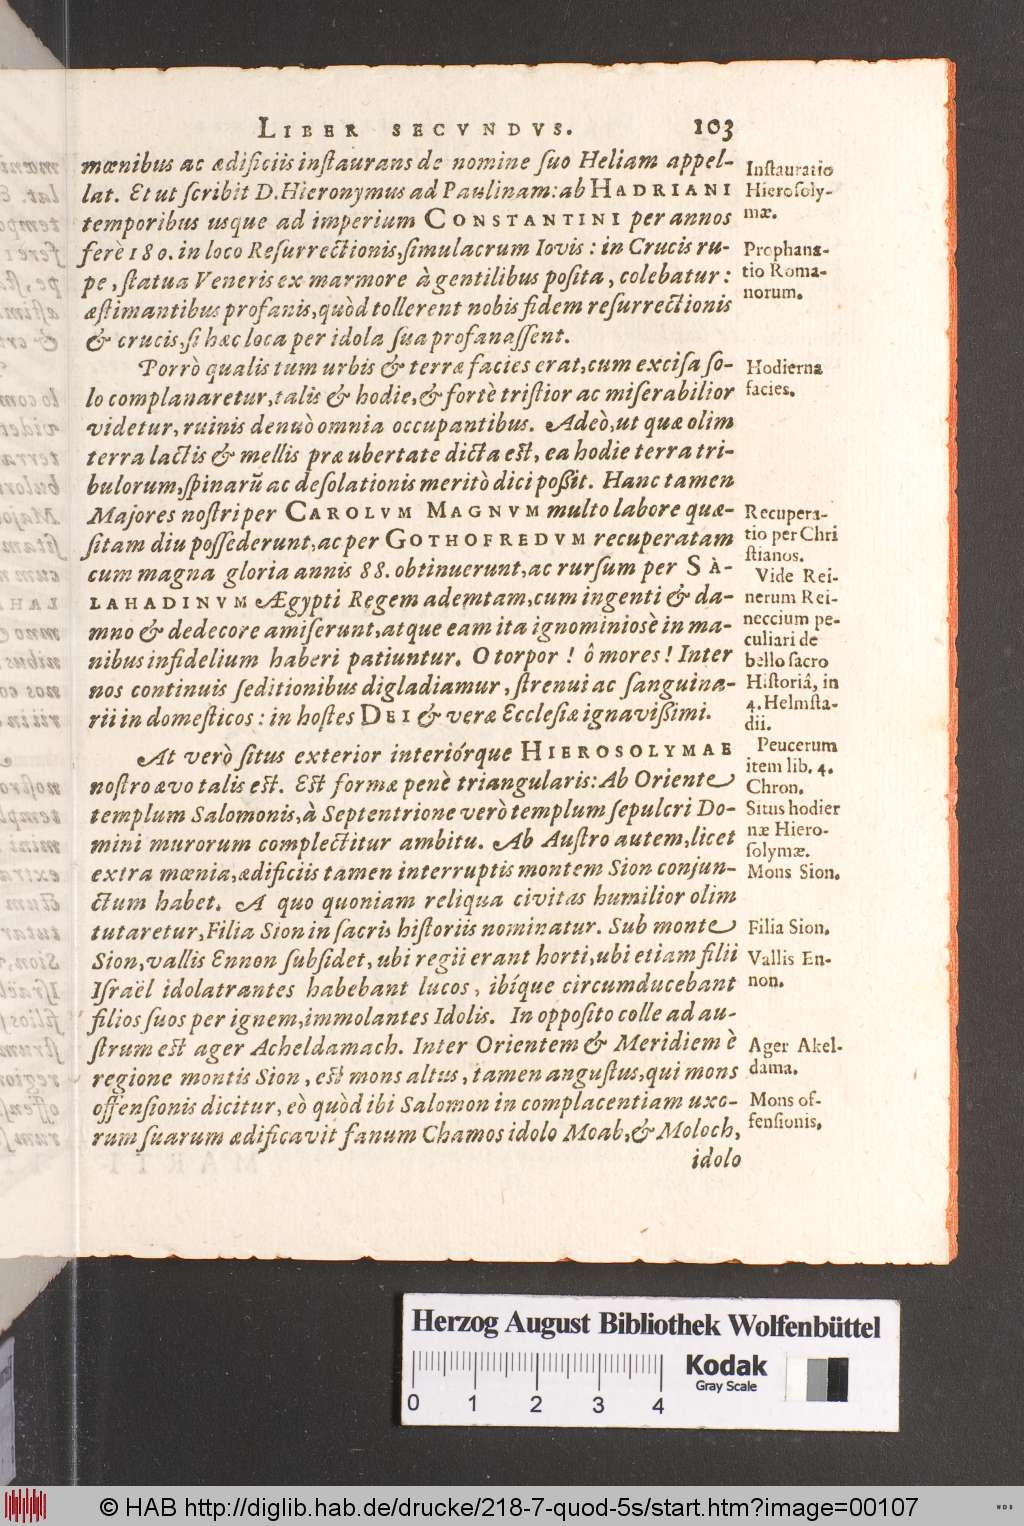 LIBER SECVNDVS. 103
mœnibus ac ædificiis inſtaurans de nomine ſuo Heliam appel-
lat. Et ut ſcribit D. Hieronymus ad Paulinam: ab HADRIANI
temporibus usque ad imperium CONSTANTINI per annos
ferè 180. in loco Reſurrectionis, ſimulacrum Iovis: in Crucis ru-
pe, ſtatua Veneris ex marmore à gentilibus poſita, colebatur:
æſtimantibus profanis, quòd tollerent nobis fidem reſurrectionis
& crucis, ſi hæc loca per idola ſua profanaſſent.
Porrò qualis tum urbis & terræ facies erat, cum exciſa ſo-
lo complanaretur, talis & hodie, & fortè triſtior ac miſerabilior
videtur, ruinis denuò omnia occupantibus. Adeò, ut quæ olim
terra lactis & mellis præ ubertate dicta eſt, ea hodie terra tri-
bulorum, ſpinarũ ac deſolationis meritò dici poßit. Hanc tamen
Majores noſtri per CAROLVM MAGNVM multo labore quæ-
ſitam diu poſſederunt, ac per GOTHOFREDVM recuperatam
cum magna gloria annis 88. obtinuerunt, ac rurſum per SA-
LAHADINVM Ægypti Regem ademtam, cum ingenti & da-
mno & dedecore amiſerunt, atque eam ita ignominiosè in ma-
nibus infidelium haberi patiuntur. O torpor! ô mores! Inter
nos continuis ſeditionibus digladiamur, ſtrenui ac ſanguina-
rii in domeſticos: in hoſtes DEI & veræ Eccleſiæ ignavißimi.
At verò ſitus exterior interiórque HIEROSOLYMAE
noſtro ævo talis eſt. Eſt formæ penè triangularis: Ab Oriente
templum Salomonis, à Septentrione verò templum ſepulcri Do-
mini murorum complectitur ambitu. Ab Auſtro autem, licet
extra mœnia, ædificiis tamen interruptis montem Sion conjun-
ctum habet. A quo quoniam reliqua civitas humilior olim
tutaretur, Filia Sion in ſacris hiſtoriis nominatur. Sub monte
Sion, vallis Ennon ſubſidet, ubi regii erant horti, ubi etiam filii
Iſraël idolatrantes habebant lucos, ibíque circumducebant
filios ſuos per ignem, immolantes Idolis. In oppoſito colle ad au-
ſtrum eſt ager Acheldamach. Inter Orientem & Meridiem è
regione montis Sion, eſt mons altus, tamen anguſtus, qui mons
offenſionis dicitur, eò quòd ibi Salomon in complacentiam uxo-
rum ſuarum ædificavit fanum Chamos idolo Moab, & Moloch,
idolo
Inſtauratio
Hieroſoly-
mæ.
Prophana-
tio Roma-
norum.
Hodierna
facies.
Recupera-
tio per Chri
ſtianos.
Vide Rei-
nerum Rei-
neccium pe-
culiari de
bello ſacro
Hiſtoriâ, in
4. Helmſta-
dii.
Peucerum
item lib. 4.
Chron.
Situs hodier
næ Hiero-
ſolymæ.
Mons Sion.
Filia Sion.
Vallis En-
non.
Ager Akel-
dama.
Mons of-
fenſionis.
Herzog August Bibliothek Wolfenbüttel
Kodak
Gray Scale
0 1 2 3 4
© HAB http://diglib.hab.de/drucke/218-7-quod-5s/start.htm?image=00107